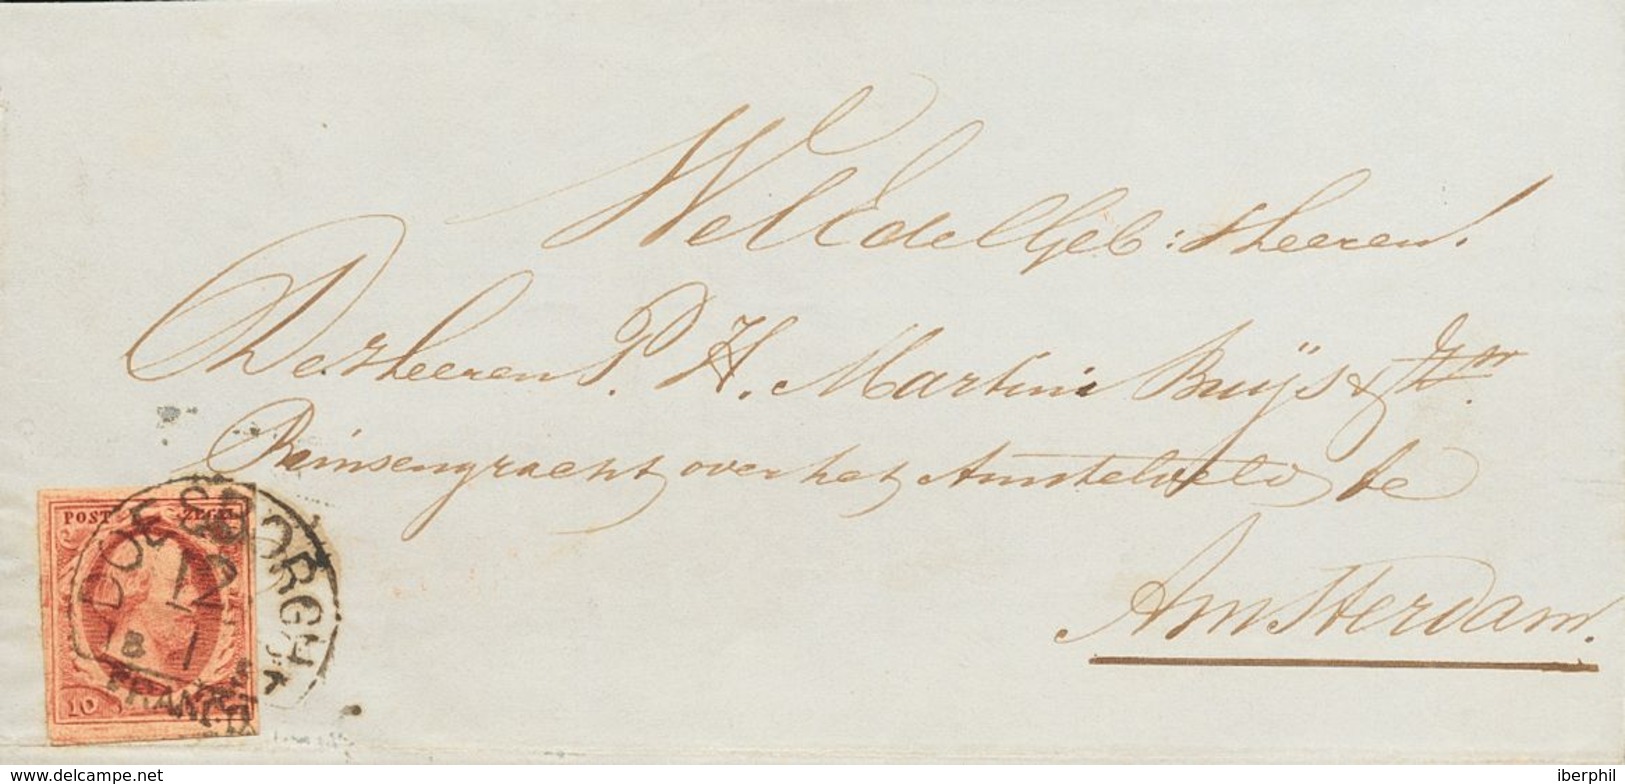 WelEdelGeb: Heeren.
De Heeren P. H. Martini Buijs &
Prinsengracht over het Amstelveld te
Amsterdam.
POST ZEGEL
DOESBORGH
12
1
FRANCO
10
www.delcampe.net
iberphil